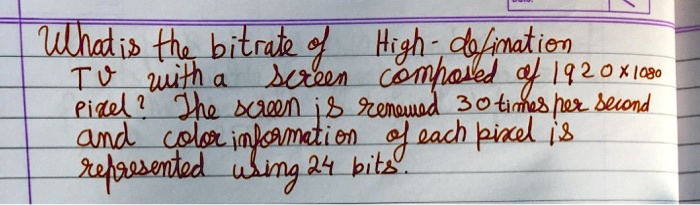 What is the bitrate of High-defination
TV with a screen composed of 1920×1080
Pixel? The screen is renewed 30 times per second
and color information of each pixel is
represented using 24 bits.